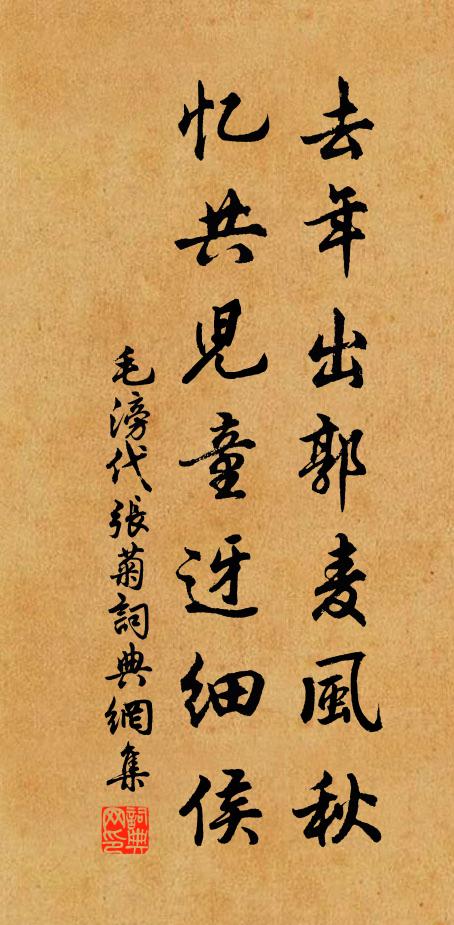 去年出郭麦風秋
忆共児童迓细侯
毛滂代張菊詞典網集
詞典网印